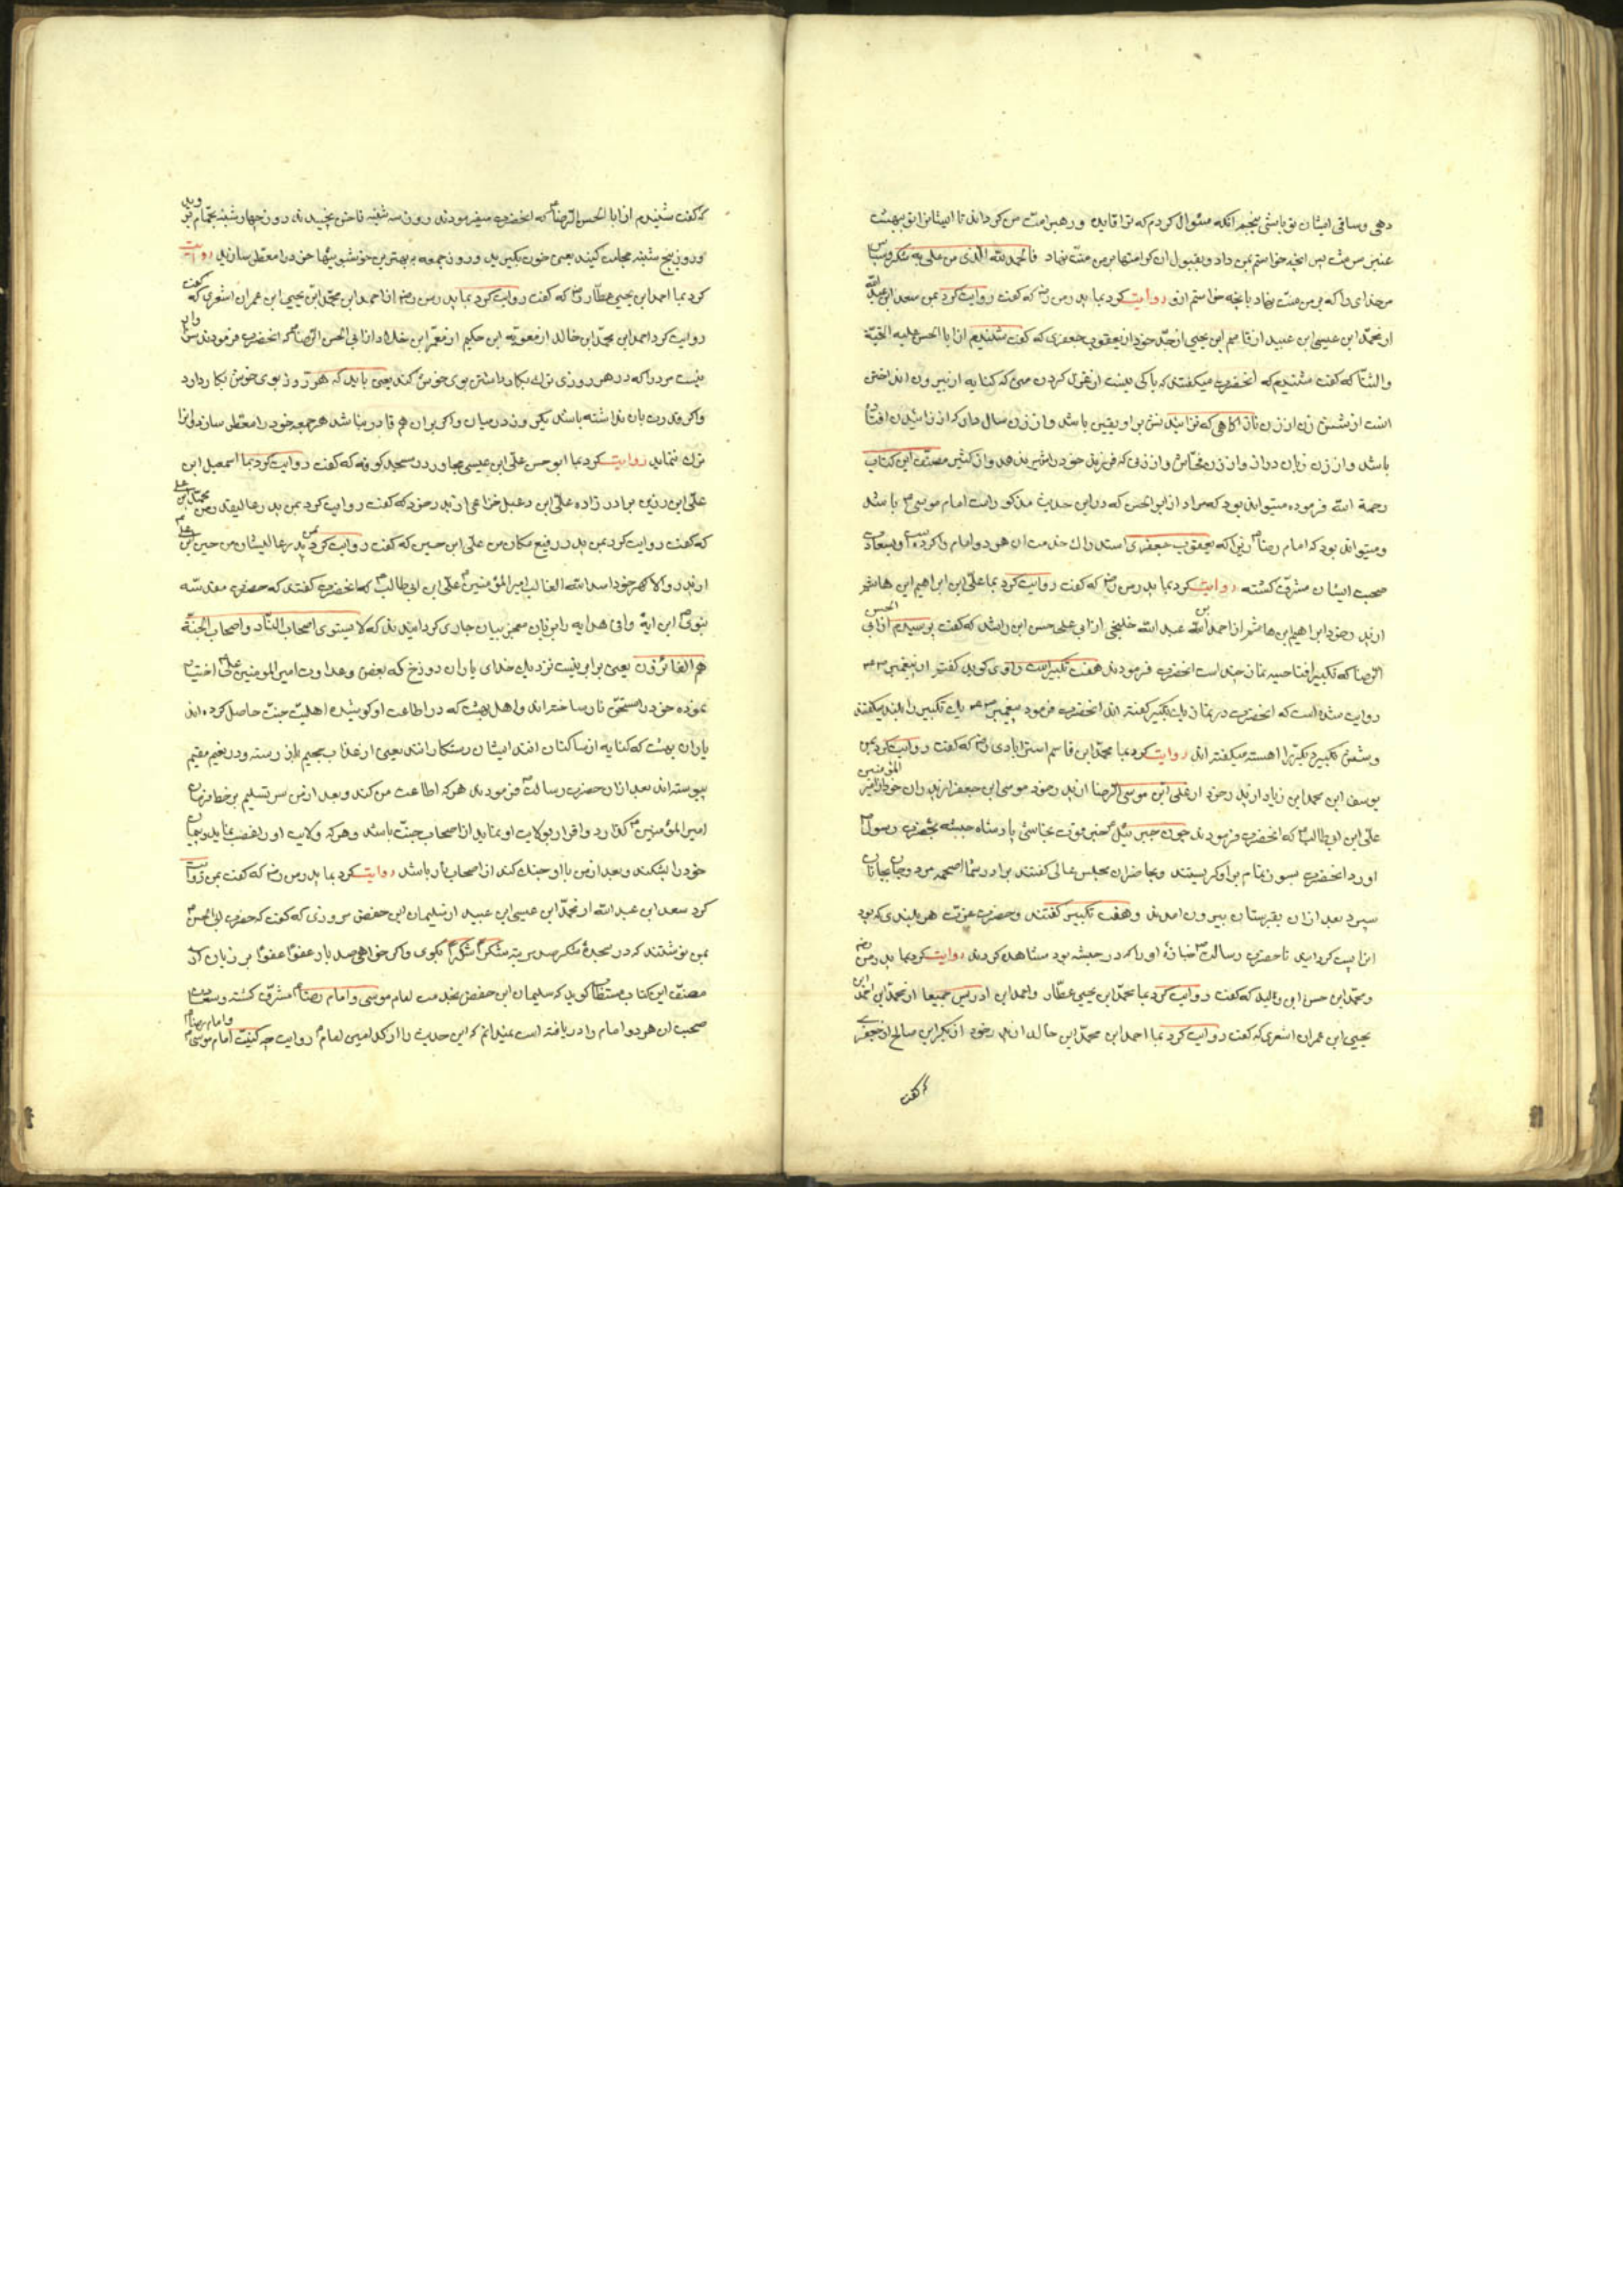 دهی وساقی ایشان تو باشی پنجم انکه سئوال کردم که ترا قاید و رهبر امت من کرداند تا ایشانرا بهشت
پس انچه خواستم بمن داد و بقبول ان کرامتها بر من منت نهاد فالحمد لله الذی من علی به شکر و سپاس
مر خدای را که بر من منت نهاد بانچه خواستم ازو روایت کرد بما پدر من رض که گفت روایت کرد بمن سعد ابن عبد الله
از محمد ابن عیسی ابن عبید از قاسم ابن یحیی از جد خود از یعقوب جعفری که گفت شنیدم از ابا الحسن علیه التحیة
والثنا که گفت شنیدم که انحضرت میکفتند که باکی نیست از عزل کردن منی که کنایه از بیرون انداختن
انست از شش زن از زن نازا کاهی که نزائیدنش بر او یقین باشد و از زن سال دار که از زائیدن افتاده
باشد و از زن زبان دراز و از زن فحاش و از زنی که فرزند خود را شیر ندهد و از کنیز مصنف این کتاب
رحمة الله فرموده میتواند بود که مراد از ابو الحسن که در این حدیث مذکور است امام موسی باشد
و میتواند بود که امام رضا زیرا که یعقوب جعفری استدراک خدمت ان هر دو امام را کرده و بسعادت
صحبت ایشان مشرف کشته روایت کرد بما پدر من رض که گفت روایت کرد بما علی ابن ابراهیم ابن هاشم
از پدر خود ابراهیم ابن هاشم از احمد بن عبد الله خلیجی از ابی علی حسن ابن راشد که گفت پرسیدم از ابی الحسن
الرضا که تکبیر افتتاحیه نماز چند است انحضرت فرمودند هفت تکبیر است راوی کوید گفتم از پیغمبر
روایت شده است که انحضرت در نماز یک تکبیر گفته اند انحضرت فرمود پیغمبر یک تکبیر را بلند میکفتند
و شش تکبیر دیکر را اهسته میکفته اند روایت کرد بما محمد ابن قاسم استرابادی رض که گفت روایت کرد بمن
یوسف ابن محمد ابن زیاد از پدر خود از علی ابن موسی الرضا از پدر خود موسی ابن جعفر از پدران خود از امیر المؤمنین
علی ابن ابیطالب که انحضرت فرمودند چون جبرئیل خبر فوت نجاشی پادشاه حبشه بحضرت رسول
اورد انحضرت بسوز تمام بر او کریستند و بحاضران مجلس عالی گفتند برادر شما اصحمه مرد و جان بجانان
سپرد بعد ازان بقبرستان بیرون امدند و هفت تکبیر گفتند و حضرت عزت هر بلندی که بود
انرا پست کردانید تا حضرت رسالت جنازهٔ او را که در حبشه بود مشاهده کردند روایت کرد بما پدر من رض
و محمد ابن حسن ابن ولید که گفت روایت کرد بما محمد ابن یحیی عطار و احمد ابن ادریس جمیعا از محمد ابن احمد ابن
یحیی ابن عمران اشعری که گفت روایت کرد بما احمد ابن محمد ابن خالد از پدر خود از بکر ابن صالح از جعفری
که گفت
که گفت شنیدم از ابا الحسن الرضا که انحضرت میفرمودند روز سه شنبه ناخن بچینید روز چهار شنبه بحمام روید
و روز پنج شنبه حجامت کنید یعنی خون بکیرید و روز جمعه به بهترین خوشبوئیها خود را معطر سازید روایت
کرد بما احمد ابن یحیی عطار رض که گفت روایت کرد بما پدر من رض از احمد ابن محمد ابن یحیی ابن عمران اشعری که گفت
روایت کرد احمد ابن محمد ابن خالد از معویه ابن حکیم از معمر ابن خلاد از ابی الحسن الرضا که انحضرت فرمودند سزاوار
نیست مرد را که در هر روزی ترک بکار داشتن بوی خوش کند یعنی باید که هر روز بوی خوش بکار دارد
و اکر قدرت بان نداشته باشد یکروز در میان و اکر بران هم قادر نباشد هر جمعه خود را معطر سازد و انرا
ترک ننماید روایت کرد بما ابو حسن علی ابن عیسی مجاور در مسجد کوفه که گفت روایت کرد بما اسمعیل ابن
علی ابن رزین برادر زاده علی ابن دعبل خزاعی از پدر خود که گفت روایت کرد بمن پدر عالیقدر من محمد ابن علی
که گفت روایت کرد بمن پدر رفیع مکان من علی ابن حسین که گفت روایت کرد بمن پدر عالیشان من حسین ابن علی
از پدر والا گهر خود اسد الله الغالب امیر المؤمنین علی ابن ابی طالب که انحضرت گفتند که حضرت مقدسه
نبوی این ایهٔ وافی هدایه را بر زبان معجز بیان جاری کردانیدند که لا یستوی اصحاب النار و اصحاب الجنة
هم الفائزون یعنی برابر نیست نزدیک خدای یاران دوزخ که بغض و عداوت امیر المومنین علی اختیار
نموده خود را مستحق نار ساخته اند و اهل بهشت که در اطاعت او کوشیده اهلیت جنت حاصل کرده اند
یاران بهشت که کنایه از ساکنان انند ایشان رستکارانند یعنی از عذاب جحیم باز رسته و در نعیم مقیم
پیوسته اند بعد ازان حضرت رسالت فرمودند هر که اطاعت من کند و بعد از من سر تسلیم بر خط فرمان
امیر المؤمنین گذارد و اقرار بولایت او نماید از اصحاب جنت باشد و هر که ولایت او را غصب نماید و پیمان
خود را بشکند و بعد از من با او جنک کند از اصحاب نار باشد روایت کرد بما پدر من رض که گفت بمن روایت
کرد سعد ابن عبد الله از محمد ابن عیسی ابن عبید از سلیمان ابن حفص مروزی که گفت که حضرت ابی الحسن
بمن نوشتند که در سجدهٔ شکر صد مرتبه شکرا شکرا بکوی و اکر خواهی صد بار عفوا عفوا بر زبان ران
مصنف این کتاب مستطاب کوید که سلیمان ابن حفص بخدمت امام موسی و امام رضا مشرف کشته و سعادت
صحبت ان هر دو امام را دریافته است نمیدانم که این حدیث را از کدامین امام روایت چه کنیت امام موسی و امام رضا